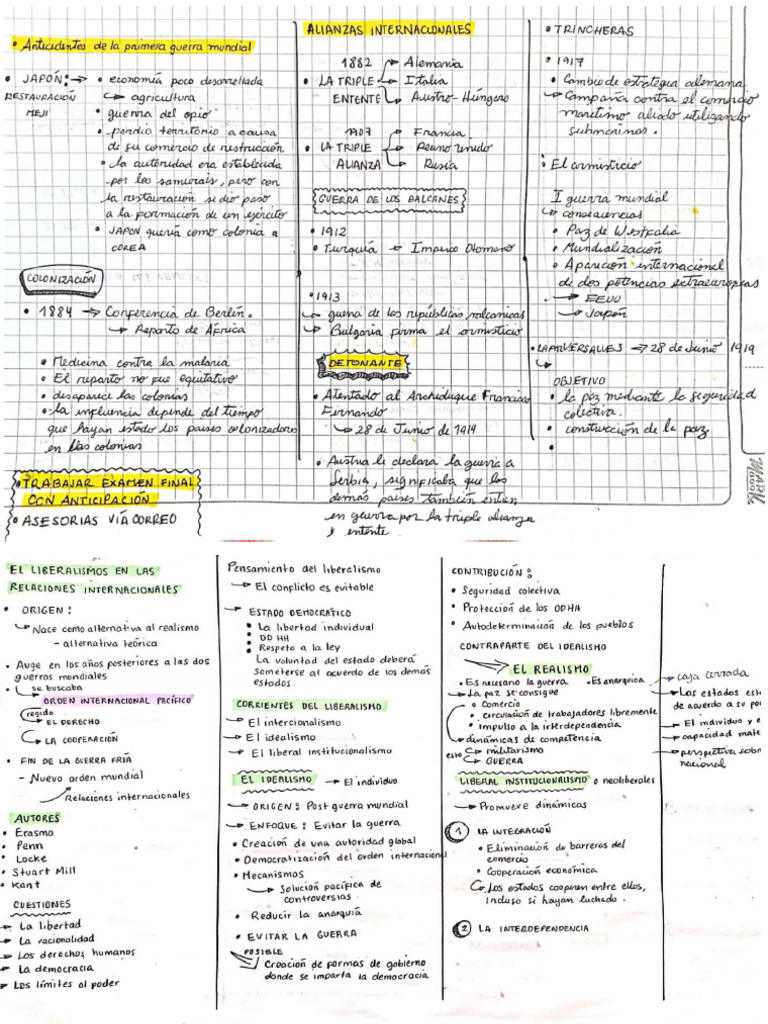 • Antecedentes de la primera guerra mundial
• JAPÓN: → • economía poco desarrollada
RESTAURACIÓN
MEJI
↳ agricultura
• guerra del opio
• perdio territorio a causa
de su comercio de restrucción
• la autoridad era establecida
por los samurais, pero con
la restauración se dio paso
a la formación de un ejército
• JAPON quería como colonia a
COREA
COLONIZACIÓN
• 1884 → Conferencia de Berlín.
↳ Reparto de África
• Medicina contra la malaria
• El reparto no fue equitativo
• desaparece las colonias
• la influencia depende del tiempo
que hayan estado los países colonizadores
en las colonias
• TRABAJAR EXAMEN FINAL
CON ANTICIPACIÓN
• ASESORIAS VÍA CORREO
ALIANZAS INTERNACIONALES
1882
• LA TRIPLE
ENTENTE
→ Alemania
→ Italia
→ Austro-Húngaro
1907
• LA TRIPLE
ALIANZA
→ Francia
→ Reino Unido
→ Rusia
GUERRA DE LOS BALCANES
• 1912
• Turquía → Imperio Otomano
• 1913
↳ guerra de las repúblicas valcanicas
↳ Bulgaria firma el armisticio
DETONANTE
• Atentado al Archiduque Francisco
Fernando
↳ 28 de Junio de 1914
• Austria le declara la guerra a
Serbia, significaba que los
demás países también entren
en guerra por la triple alianza
y entente.
• TRINCHERAS
• 1917
• Cambio de estrategia alemana
↳ Campaña contra el comercio
marítimo aliado utilizando
submarinos.
• El armisticio
I guerra mundial
↳ consecuencias
• Paz de Westfalia
• Mundialización
• Aparición internacional
de dos potencias extraeuropeas
→ EEUU
→ Japón
• LA PAZ VERSALLES → 28 de Junio 1919
OBJETIVO
• la paz mediante la seguridad
colectiva.
• construcción de la paz
EL LIBERALISMOS EN LAS
RELACIONES INTERNACIONALES
• ORIGEN:
↳ Nace como alternativa al realismo
- alternativa teórica
• Auge en los años posteriores a las dos
guerras mondiales
↳ se buscaba
ORDEN INTERNACIONAL PACÍFICO
regido
↳ EL DERECHO
↳ LA COOPERACIÓN
• FIN DE LA GUERRA FRÍA
- Nuevo orden mundial
Relaciones internacionales
AUTORES
• Erasmo
• Penn
• Locke
• Stuart Mill
• Kant
CUESTIONES
→ La libertad
→ La racionalidad
→ Los derechos humanos
→ La democracia
→ Los límites al poder
Pensamiento del liberalismo
→ El conflicto es evitable
→ ESTADO DEMOCRÁTICO
• La libertad individual
• DD HH
• Respeto a la ley
La voluntad del estado deberá
someterse al acuerdo de los demás
estados.
CORRIENTES DEL LIBERALISMO
→ El intercionalismo
→ El idealismo
→ El liberal institucionalismo
EL IDEALISMO → El individuo
→ ORIGEN: Post guerra mundial
→ ENFOQUE: Evitar la guerra
• Creación de una autoridad global
• Democratización del orden internacional
• Mecanismos
↳ Solución pacífica de
controversias.
• Reducir la anarquía
• EVITAR LA GUERRA
POSIBLE
Creación de formas de gobierno
donde se imparta la democracia
CONTRIBUCIÓN:
• Seguridad colectiva
• Protección de los DDHH
• Autodeterminación de los pueblos
CONTRAPARTE DEL IDEALISMO
EL REALISMO
• Es necesario la guerra • Es anarquica
→ La paz se consigue
• Comercio
• circulación de trabajadores libremente
• impulso a la interdependencia
→ dinámicas de competencia
esto → militarismo
→ GUERRA
→ caja cerrada
→ Los estados est
de acuerdo a su po
→ El individuo y e
→ capacidad mate
→ perspectiva sobr
nacional
LIBERAL INSTITUCIONALISMO o neoliberales
→ Promueve dinámicas
1 LA INTEGRACIÓN
• Eliminación de barreras del
comercio
• Cooperación económica
↳ Los estados cooperen entre ellos,
incluso si hayan luchado.
2 LA INTERDEPENDENCIA